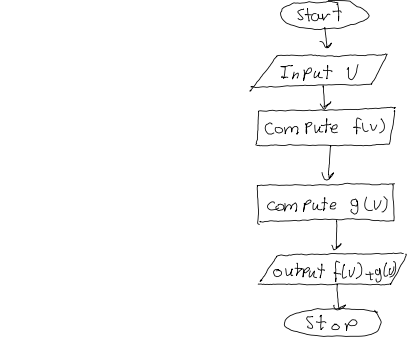 Start
Input U
compute f(v)
compute g(v)
output f(v)+g(v)
Stop